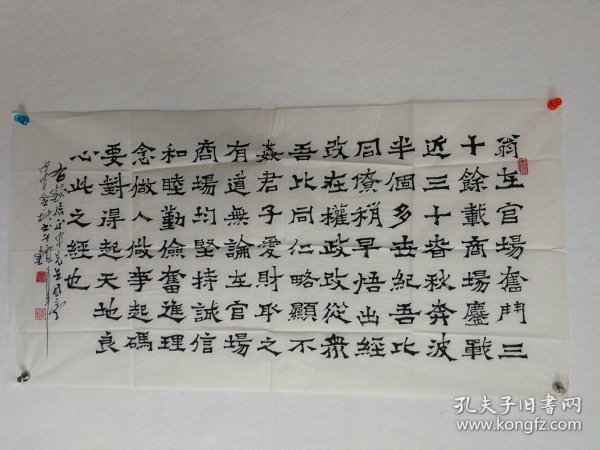 翁在官場奮鬥三
十餘載商場鏖戰
近三十春秋奔波
半個多世紀吾比
同僚稍早悟出經
改在權政改從衆
吾比同仁略顯不
姦君子愛財取之
有道無論在官場
商場均堅持誠信
和睦勤儉奮進理
念做人做事起碼
要對得起天地良
心此之經也
孔夫子旧书网
www.kongfz.com